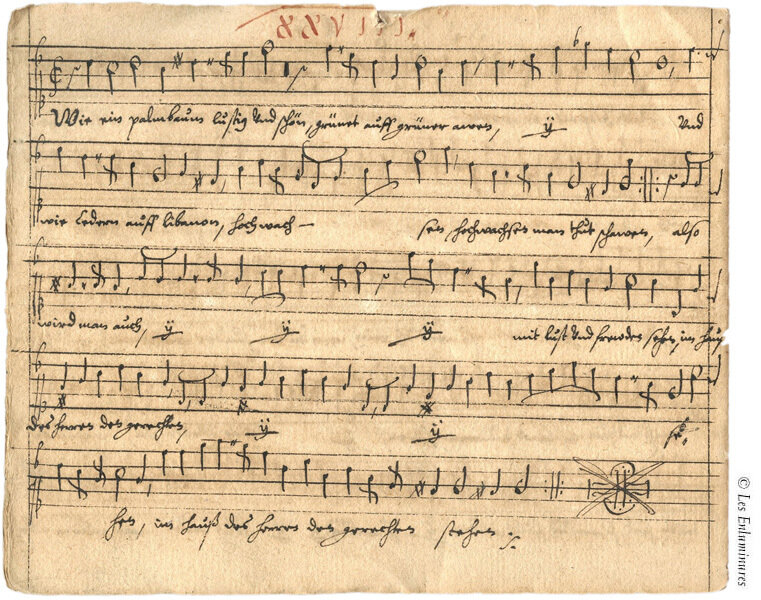 XXVIII.
Wie ein palmbaum lustig und schön, grünet auff grüner awen, ij Und
wie Cedern auff libanon, hoch wach- sen hochwachsen man thut schawen, also
wird man auch, ij ij ij mit lust und frewden sehen, im hauß
des herren den gerechten, ij ij ste,
hen, im hauß des herren den gerechten stehen.
© Les Enluminures